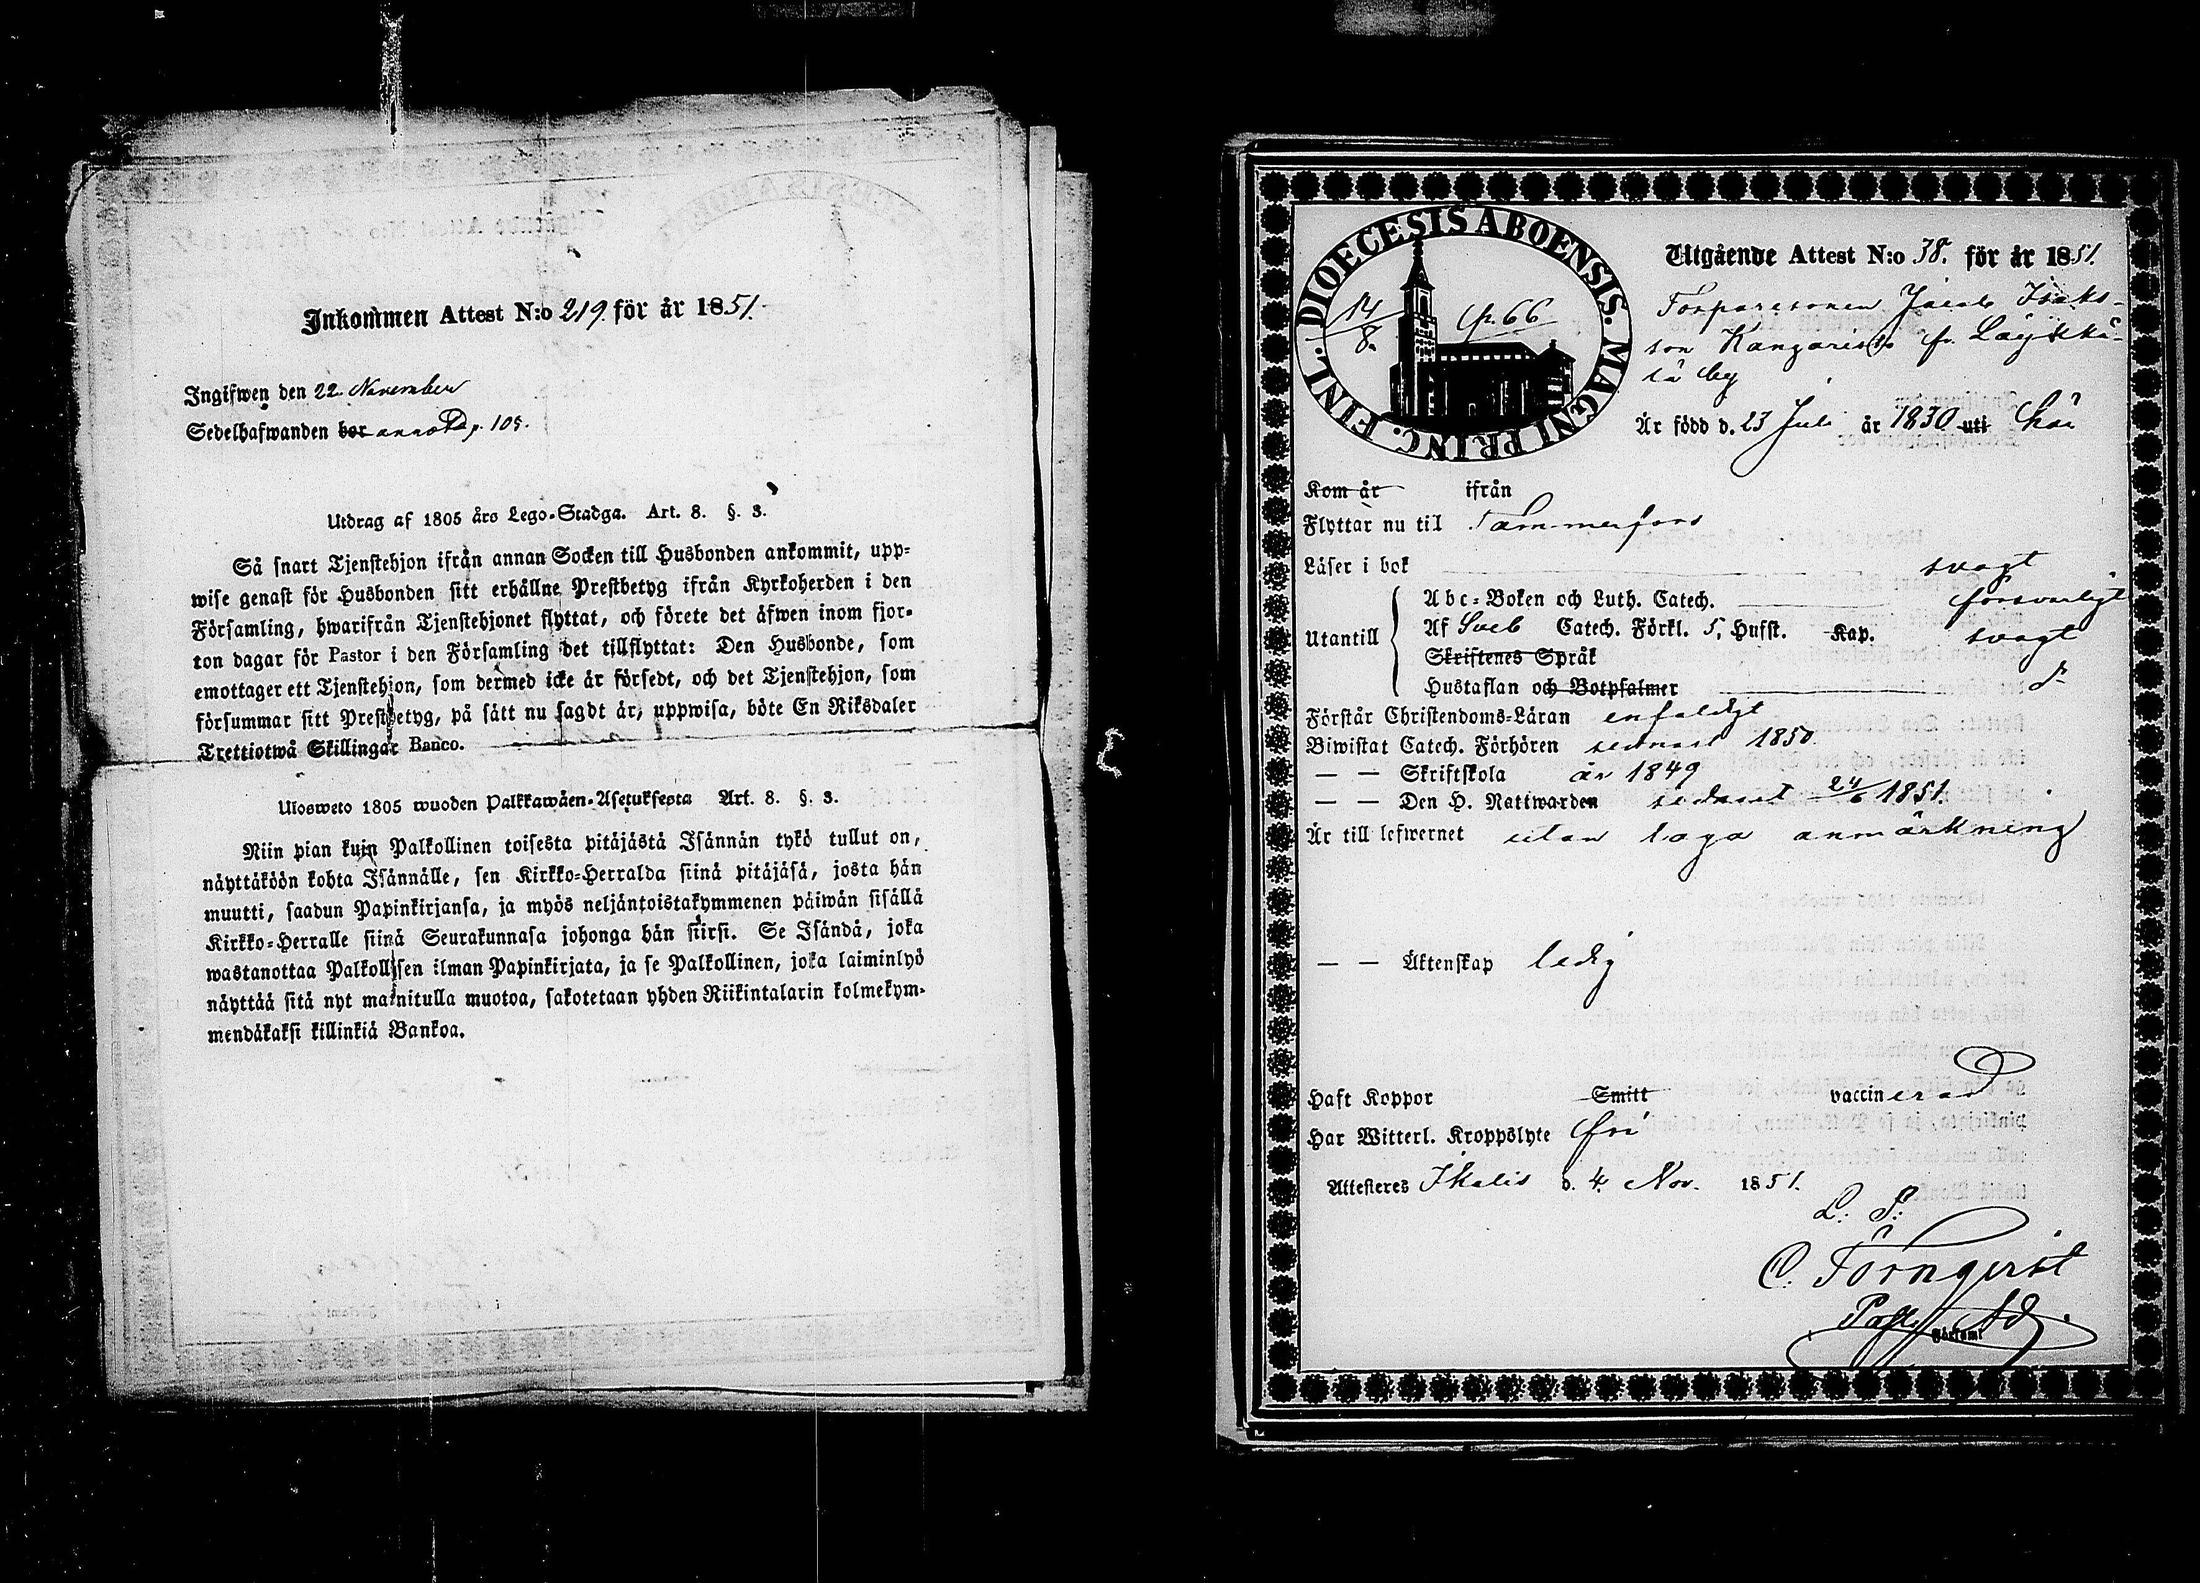 Inkommen Attest N:o 219. för år 1851.
Ingifwen den 22 November
Sedelhafwanden bor annot Pag. 105.
Utdrag af 1805 års Lego-Stadga. Art. 8. §. 3.
Så snart Tjenstehjon ifrån annan Socken till Husbonden ankommit, upp-
wise genast för Husbonden sitt erhållne Prestbetyg ifrån Kyrkoherden i den
Församling, hwarifrån Tjenstehjonet flyttat, och förete det äfwen inom fjor-
ton dagar för Pastor i den Församling det tillflyttat: Den Husbonde, som
emottager ett Tjenstehjon, som dermed icke är försedt, och det Tjenstehjon, som
försummar sitt Prestbetyg, på sätt nu sagdt är, uppwisa, böte En Riksdaler
Trettiotwå Skillingar Banco.
Ulosweto 1805 wuoden Palkkawäen-Asetuksesta Art. 8. §. 3.
Niin pian kuin Palkollinen toisesta pitäjästä Isännän tykö tullut on,
näyttäköön kohta Isännälle, sen Kirkko-Herralda siinä pitäjäsä, josta hän
muutti, saadun Papinkirjansa, ja myös neljäntoistakymmenen päiwän sisällä
Kirkko-Herralle siinä Seurakunnasa johonga hän siirsi. Se Isändä, joka
wastanottaa Palkollisen ilman Papinkirjata, ja se Palkollinen, joka laiminlyö
näyttää sitä nyt mainitulla muotoa, sakotetaan yhden Riikintalarin kolmekym-
mendäkaksi killinkiä Bankoa.
DIOECESIS ABOENSIS. MAGNI PRINC. FINL.
14/8. fr. 66
Utgående Attest N:o 38. för år 1851.
Torparesonen Jacob Isaks-
son Kangaristo fr. Läykkä-
lä by
Är född d. 23 Juli år 1830 uti här
Kom år ifrån
Flyttar nu til Tammerfors
Läser i bok svagt
Abc-Boken och Luth. Catech. försvarligt
Utantill Af Sveb Catech. Förkl. 5, Hufst. Kap. svagt
Skriftenes Språk
Hustaflan och Botpsalmer d:o
Förstår Christendoms-Läran enfaldigt
Biwistat Catech. Förhören sednast 1850.
— — Skriftskola år 1849
— — Den H. Nattwarden sednast 24/6 1851.
Är till lefwernet utan laga anmärkning
— — Äktenskap ledig
Haft Koppor Smitt vaccinerad
Har Witterl. Kroppslyte fri
Attesteres Ikalis d. 4. Nov. 1851.
L. S.
C. Törnqvist
Församl